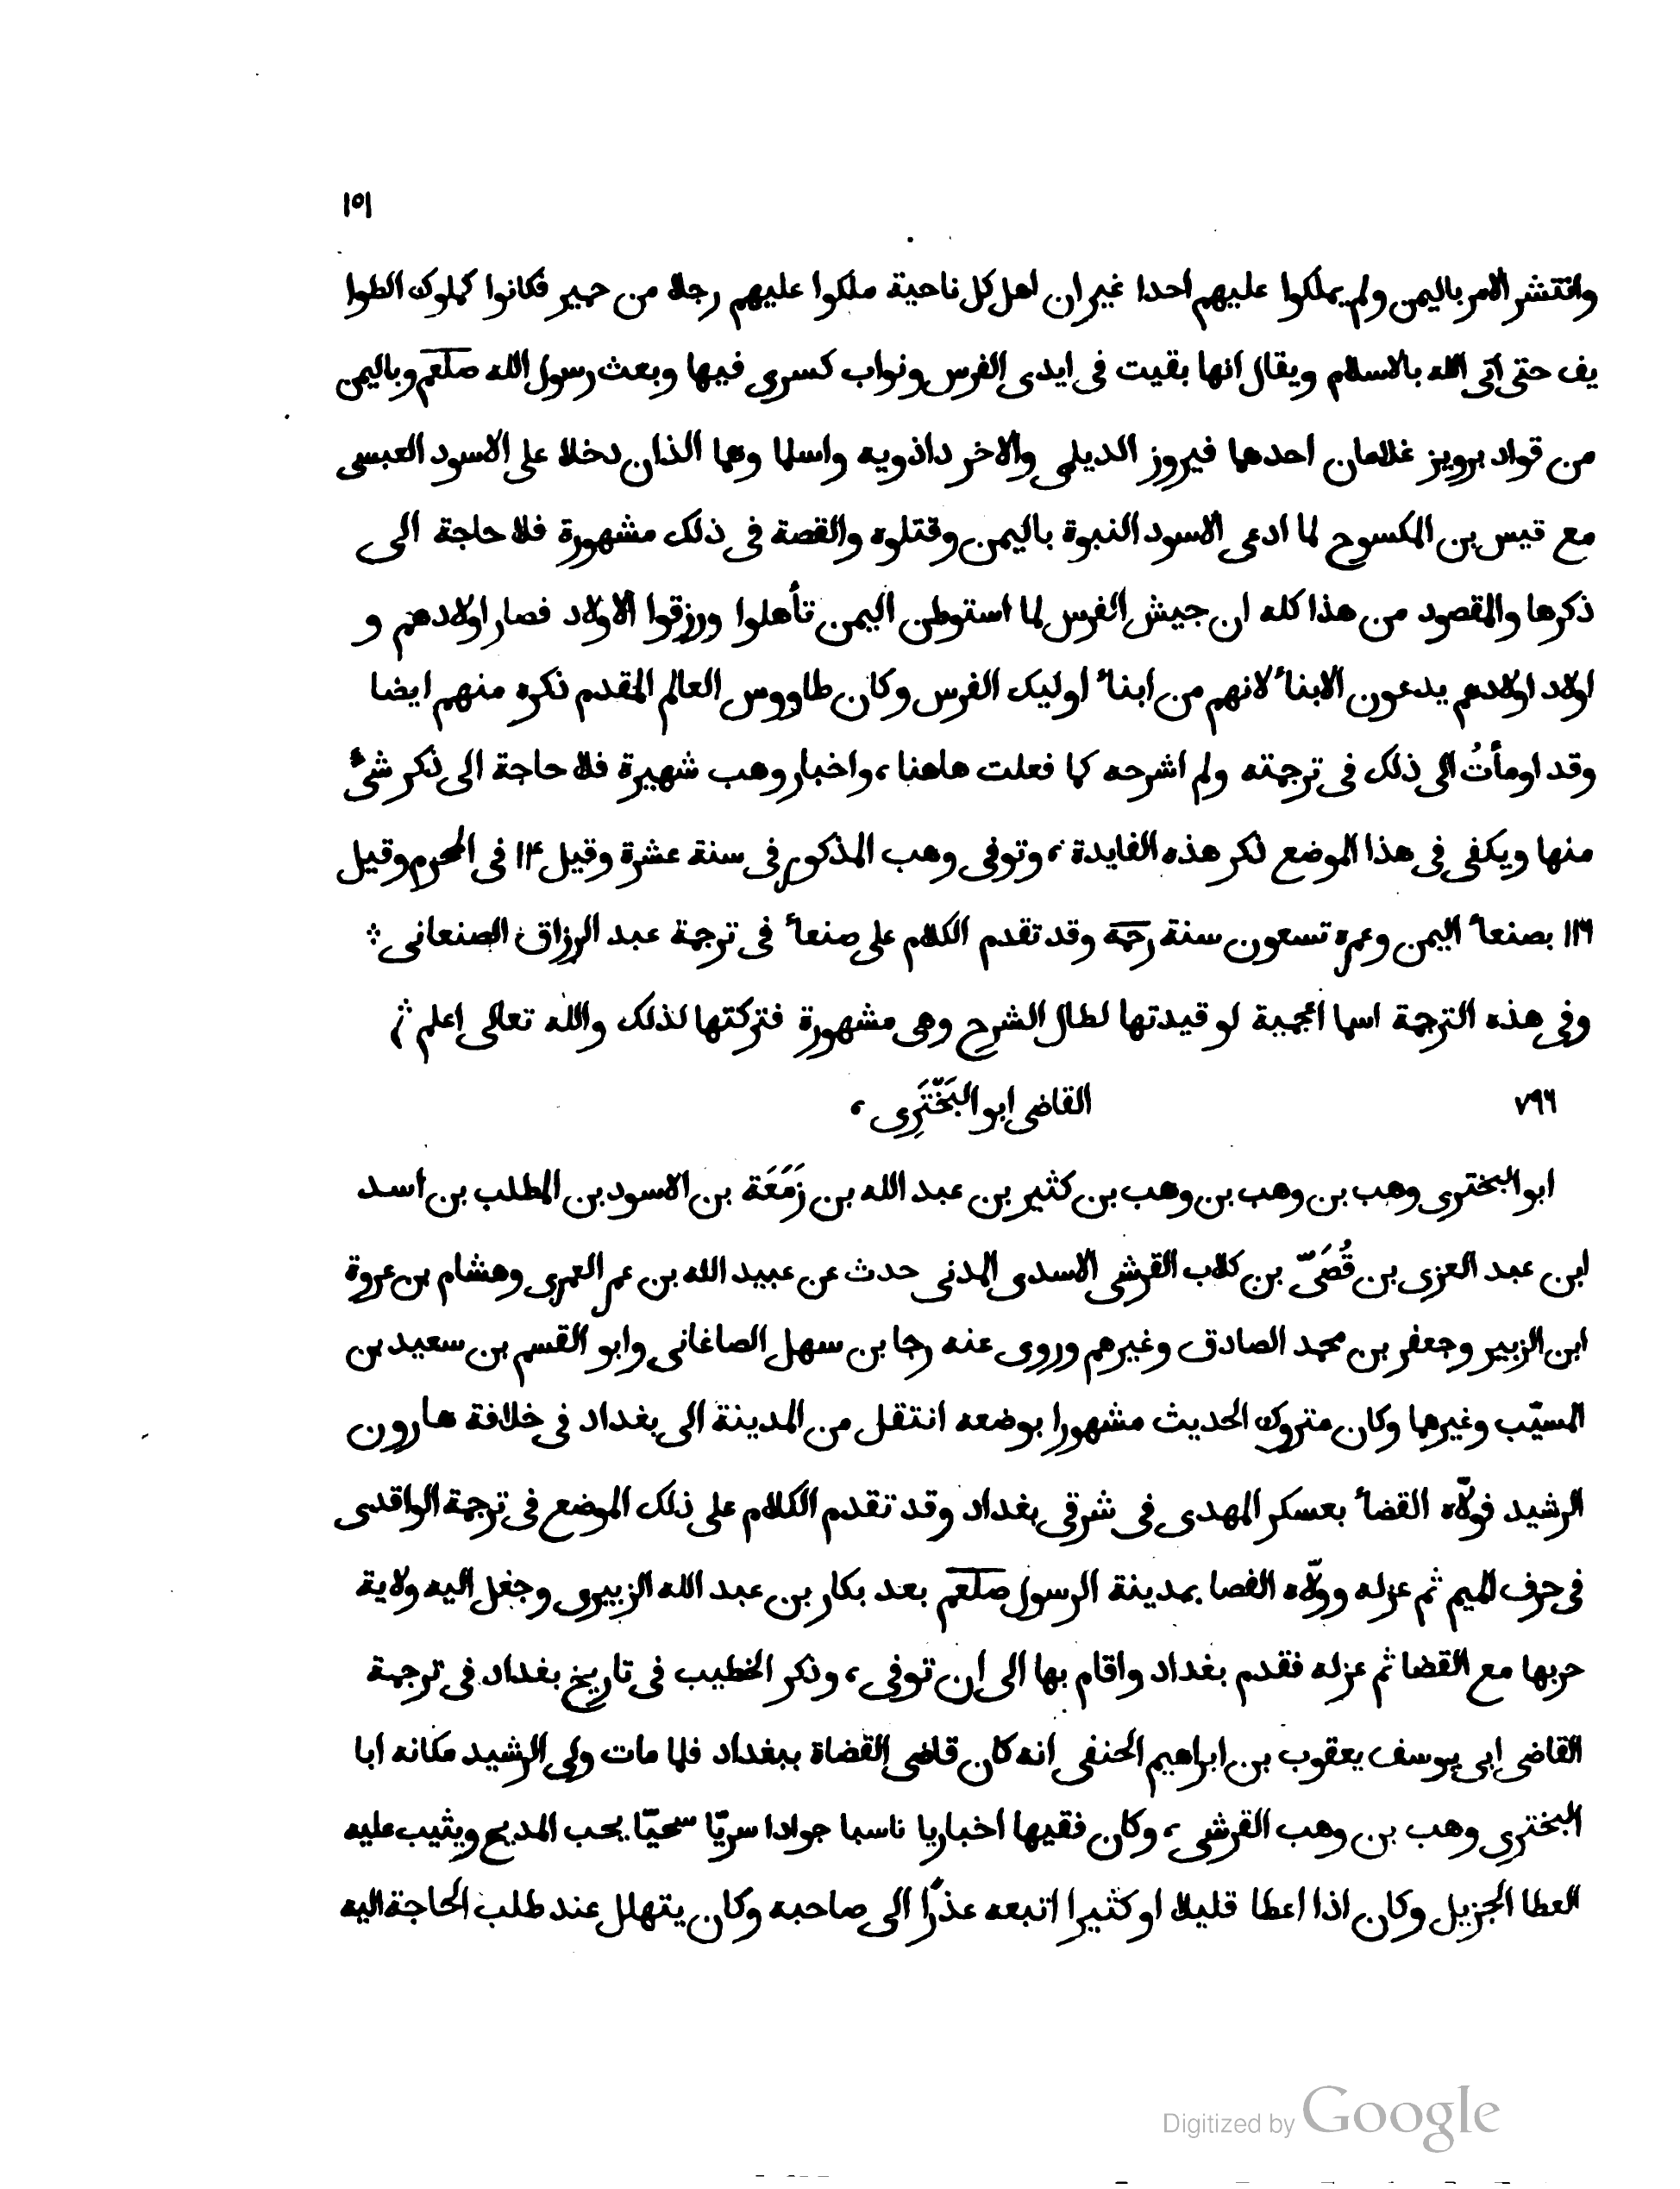 ١٥١
وانتشر الامر باليمن ولم يملكوا عليهم احدا غير ان اهل كل ناحية ملكوا عليهم رجلا من حمير فكانوا كملوك الطوا
يف حتى اتى الله بالاسلام ويقال انها بقيت فى ايدى الفرس ونواب كسرى فيها وبعث رسول الله صلعم وباليمن
من قواد برويز غلامان احدهما فيروز الديلمى والاخر داذويه واسلما وهما الذان دخلا على الاسود العبسى
مع قيس بن المكسوح لما ادعى الاسود النبوة باليمن وقتلوه والقصة فى ذلك مشهورة فلا حاجة الى
ذكرها والمقصود من هذا كله ان جيش الفرس لما استوطن اليمن تأهلوا ورزقوا الاولاد فصار اولادهم و
اولاد اولادهم يدعون الابناء لانهم من ابناء اوليك الفرس وكان طاووس العالم المقدم ذكره منهم ايضا
وقد اومأتُ الى ذلك فى ترجمته ولم اشرحه كما فعلت هاهنا ، واخبار وهب شهيرة فلا حاجة الى ذكر شىء
منها ويكفى فى هذا الموضع ذكر هذه الفايدة ، وتوفى وهب المذكور فى سنة عشرة وقيل ١١٤ فى المحرم وقيل
١١٦ بصنعاء اليمن وعمره تسعون سنة رحمه وقد تقدم الكلام على صنعاء فى ترجمة عبد الرزاق الصنعانى ؞
وفى هذه الترجمة اسما اعجمية لو قيدتها لطال الشرح وهى مشهورة فتركتها لذلك والله تعالى اعلم ؞
٧٩٦ القاضى ابو البَخْتَرِى ،
ابو البخترى وهب بن وهب بن وهب بن كثير بن عبد الله بن زَمَعَة بن الاسود بن المطلب بن اسد
ابن عبد العزى بن قُصَىّ بن كلاب القرشى الاسدى المدنى حدث عن عبيد الله بن عمر العمرى وهشام بن عروة
ابن الزبير وجعفر بن محمد الصادق وغيرهم وروى عنه رجا بن سهل الصاغانى وابو القسم بن سعيد بن
المسيّب وغيرهما وكان متروك الحديث مشهورا بوضعه انتقل من المدينة الى بغداد فى خلافة هارون
الرشيد فولّاه القضاء بعسكر المهدى فى شرقى بغداد وقد تقدم الكلام على ذلك الموضع فى ترجمة الواقدى
فى حرف الميم ثم عزله وولّاه القضا بمدينة الرسول صلعم بعد بكار بن عبد الله الزبيرى وجعل اليه ولاية
حربها مع القضا ثم عزله فقدم بغداد واقام بها الى ان توفى ، وذكر الخطيب فى تاريخ بغداد فى ترجمة
القاضى ابى يوسف يعقوب بن ابراهيم الحنفى انه كان قاضى القضاة ببغداد فلما مات ولى الرشيد مكانه ابا
البخترى وهب بن وهب القرشى ، وكان فقيها اخباريا ناسبا جوادا سريّا سخيّا يحب المديح ويثيب عليه
العطا الجزيل وكان اذا اعطا قليلا او كثيرا اتبعه عذرًا الى صاحبه وكان يتهلل عند طلب الحاجة اليه
Digitized by Google